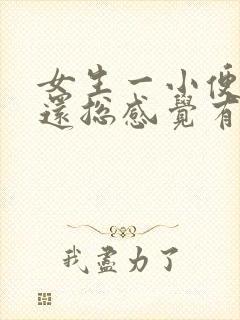 女生一小便
還總感覺有
我盡力了